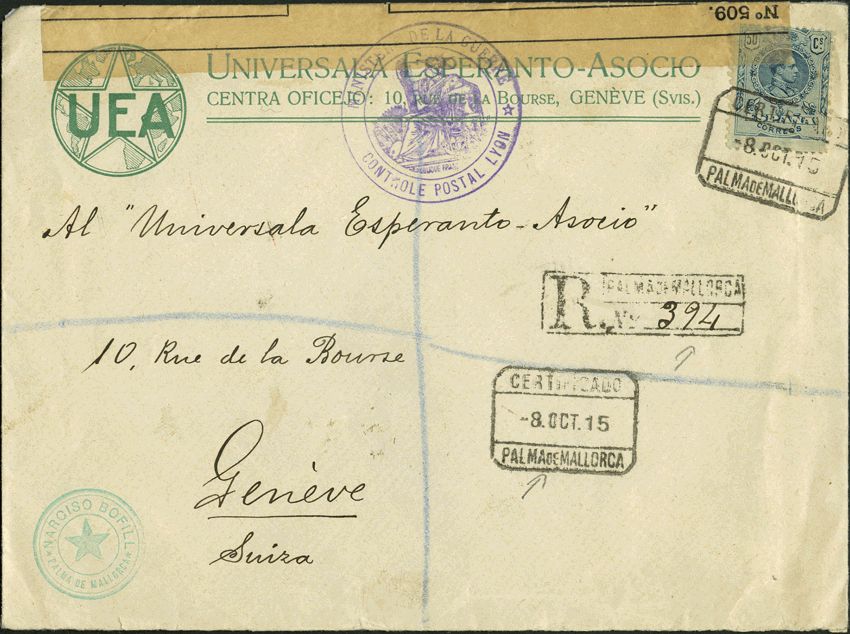 Nº 509.
UEA
UNIVERSALA ESPERANTO-ASOCIO
CENTRA OFICEJO: 10, RUE DE LA BOURSE, GENÈVE (SVIS.)
MINISTÈRE DE LA GUERRE
CONTROLE POSTAL LYON
50 Cs
CORREOS
CERTIFICADO
-8.OCT.15
PALMA DE MALLORCA
Al "Universala Esperanto-Asocio"
R. PALMA DE MALLORCA
Nº 394
10, Rue de la Bourse
CERTIFICADO
-8.OCT.15
PALMA DE MALLORCA
Genève
Suiza
NARCISO BOFILL
PALMA DE MALLORCA